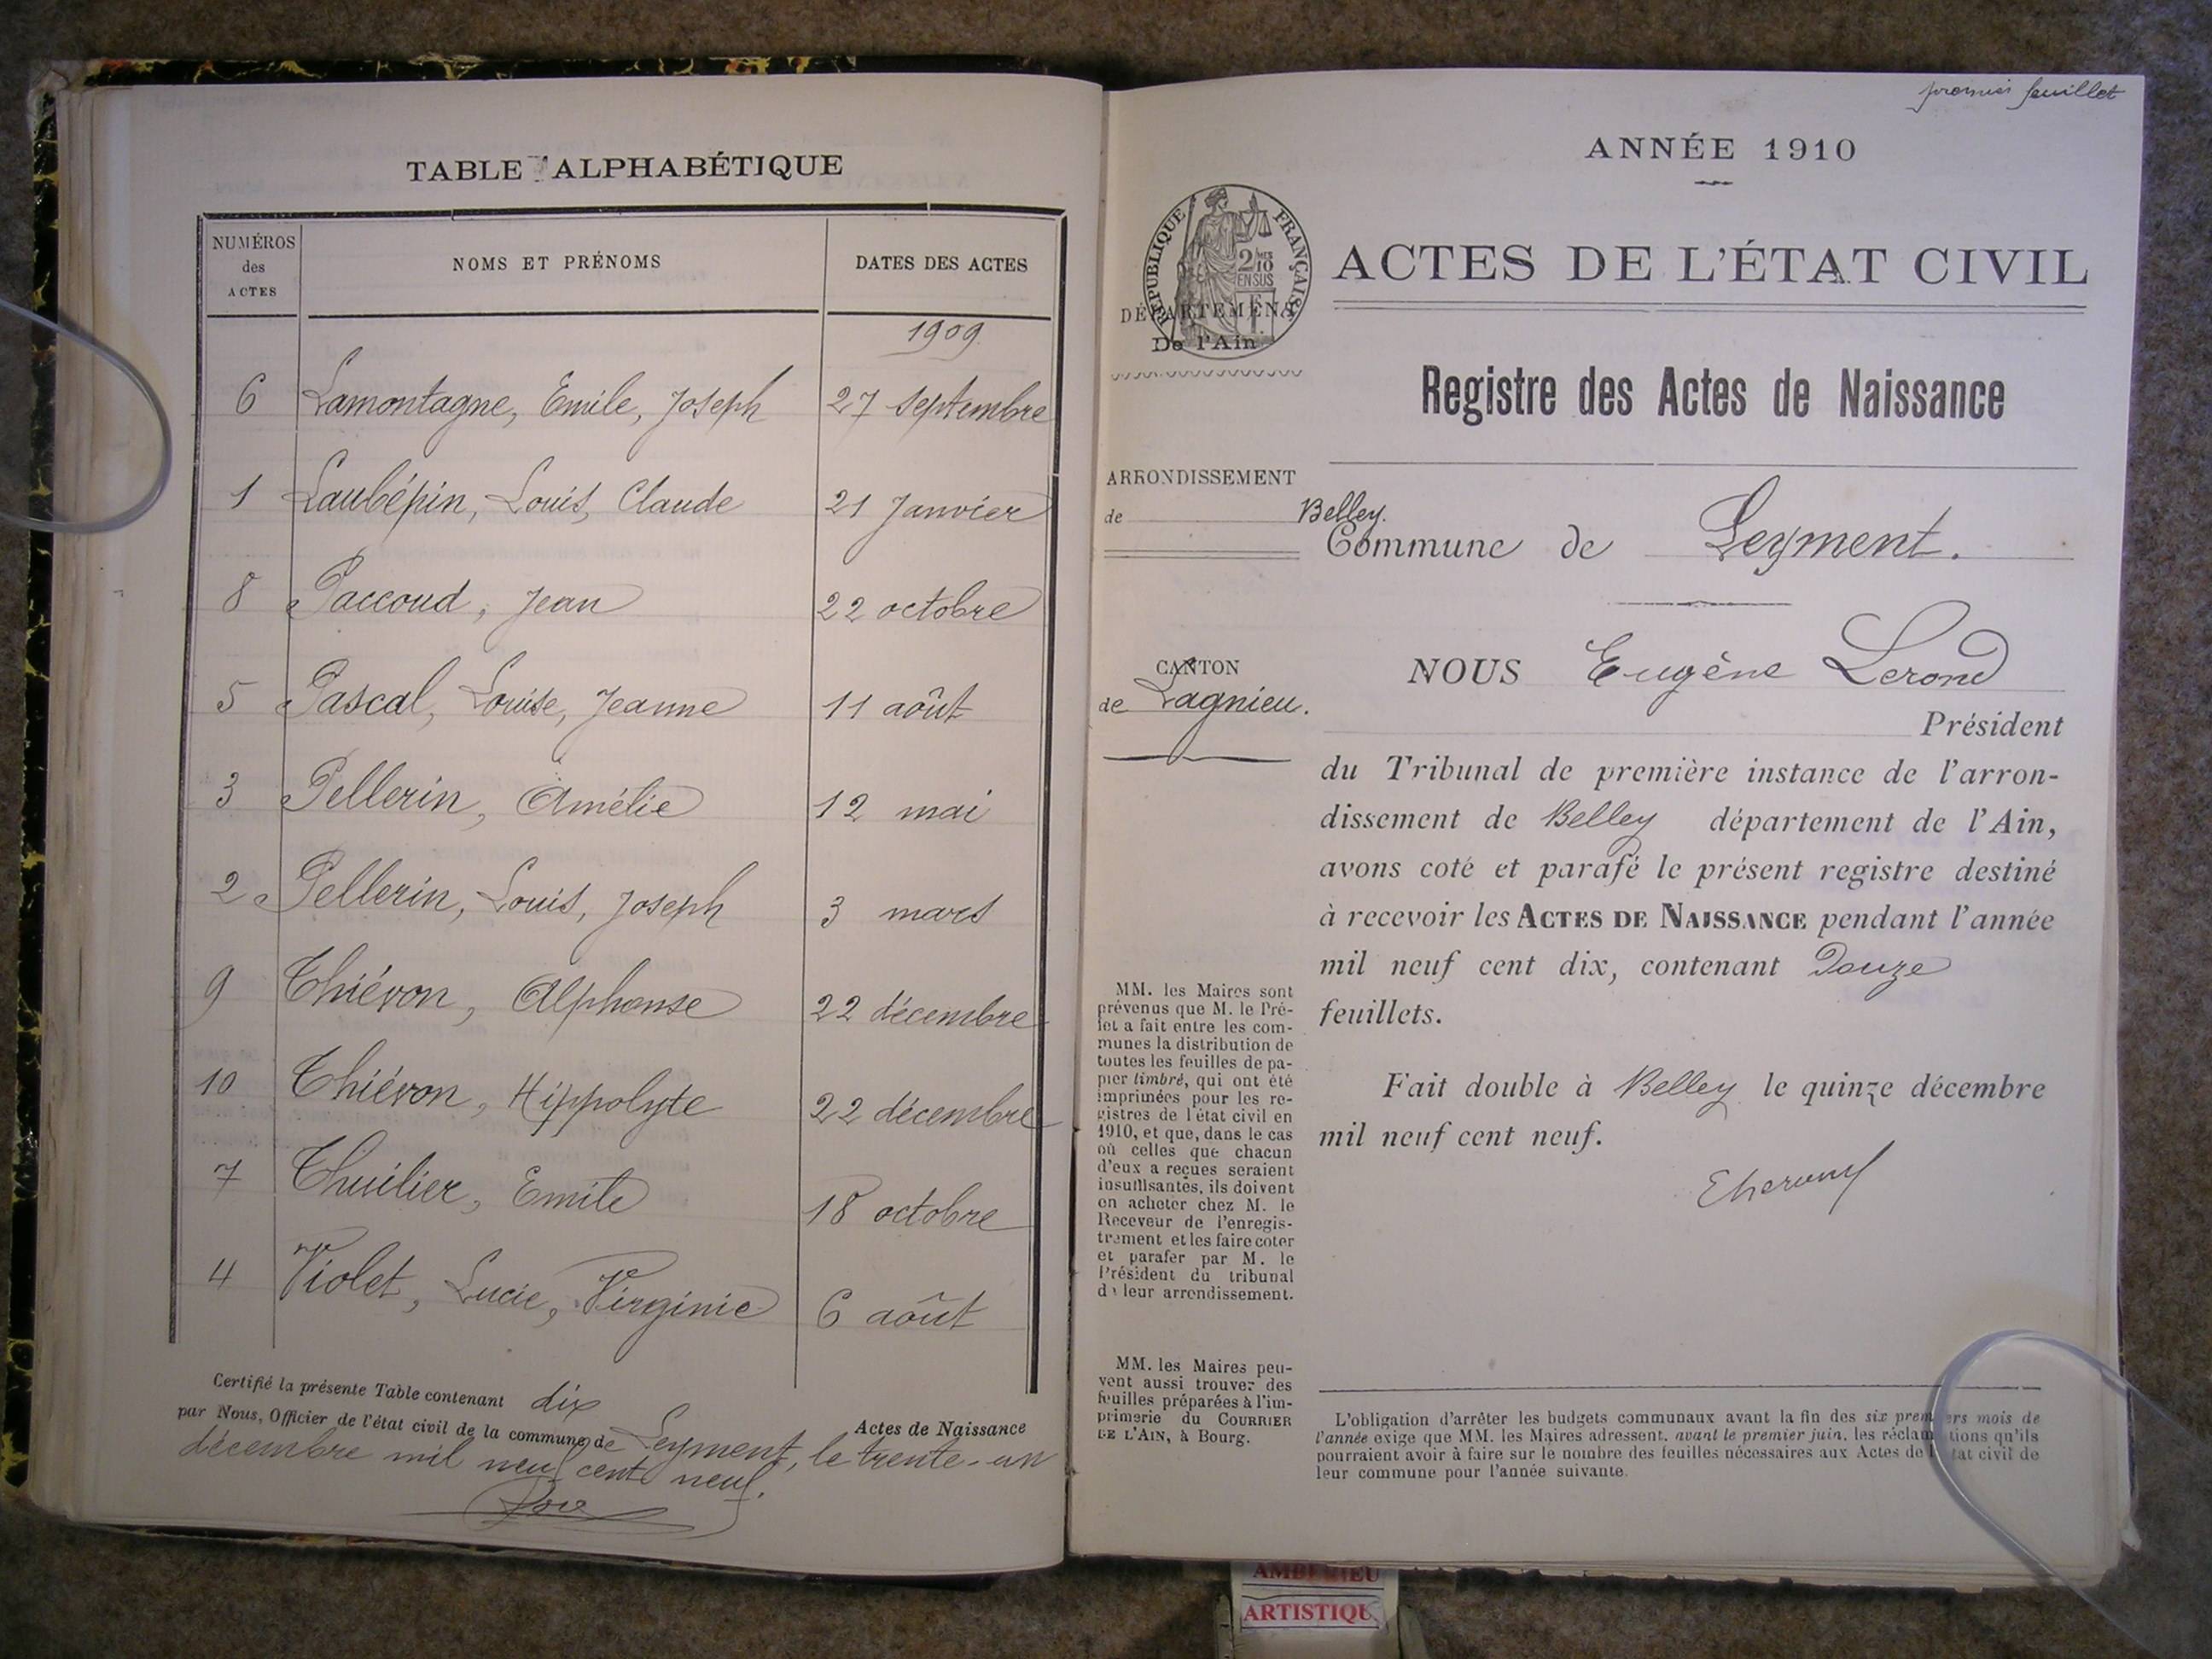 TABLE ALPHABÉTIQUE
NUMÉROS des ACTES | NOMS ET PRÉNOMS | DATES DES ACTES
1909
6 Lamontagne, Emile, Joseph 27 septembre
1 Laubépin, Louis, Claude 21 Janvier
8 Paccoud, Jean 22 octobre
5 Pascal, Louise, Jeanne 11 août
3 Pellerin, Amélie 12 mai
2 Pellerin, Louis, Joseph 3 mars
9 Thiévon, Alphonse 22 décembre
10 Thiévon, Hippolyte 22 décembre
7 Thuilier, Emile 18 octobre
4 Violet, Lucie, Virginie 6 août
Certifié la présente Table contenant dix
Actes de Naissance
par Nous, Officier de l'état civil de la commune de Leyment, le trente-un
décembre mil neuf cent neuf.
premier feuillet
ANNÉE 1910
RÉPUBLIQUE FRANÇAISE
2 MES
10
EN SUS
DÉPARTEMENT
De l'Ain
ACTES DE L'ÉTAT CIVIL
Registre des Actes de Naissance
ARRONDISSEMENT
de Belley.
Commune de Leyment.
CANTON
de Lagnieu.
NOUS Eugène Lerond
Président
du Tribunal de première instance de l'arron-
dissement de Belley département de l'Ain,
avons coté et parafé le présent registre destiné
à recevoir les ACTES DE NAISSANCE pendant l'année
mil neuf cent dix, contenant Douze
feuillets.
Fait double à Belley le quinze décembre
mil neuf cent neuf.
MM. les Maires sont
prévenus que M. le Pré-
fet a fait entre les com-
munes la distribution de
toutes les feuilles de pa-
pier timbré, qui ont été
imprimées pour les re-
gistres de l'état civil en
1910, et que, dans le cas
où celles que chacun
d'eux a reçues seraient
insuffisantes, ils doivent
en acheter chez M. le
Receveur de l'enregis-
trement et les faire coter
et parafer par M. le
Président du tribunal
de leur arrondissement.
MM. les Maires peu-
vent aussi trouver des
feuilles préparées à l'im-
primerie du COURRIER
DE L'AIN, à Bourg.
L'obligation d'arrêter les budgets communaux avant la fin des six premiers mois de
l'année exige que MM. les Maires adressent, avant le premier juin, les réclamations qu'ils
pourraient avoir à faire sur le nombre des feuilles nécessaires aux Actes de l'état civil de
leur commune pour l'année suivante.
AMBERIEU
ARTISTIQU